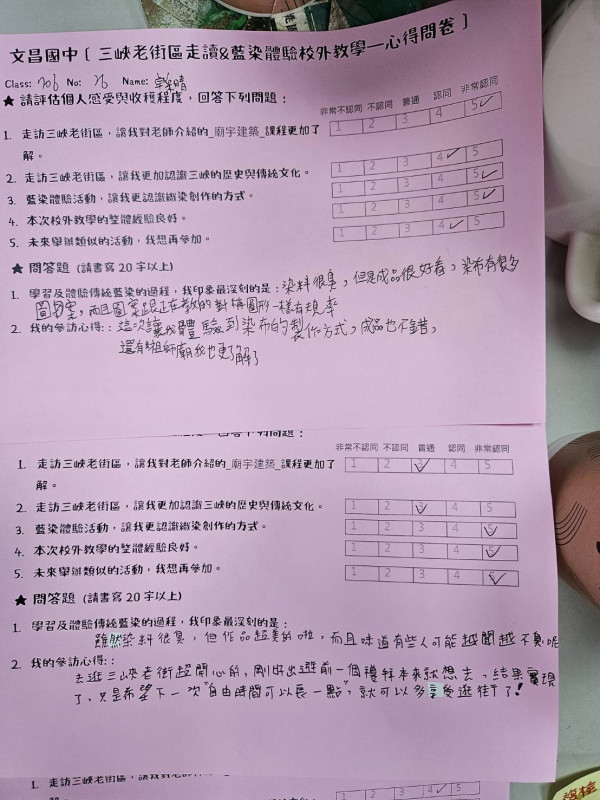 文昌國中〔三峽老街區走讀&藍染體驗校外教學—心得問卷〕
Class: 706 No: 26 Name:
★ 請評估個人感受與收穫程度，回答下列問題：
非常不認同 不認同 普通 認同 非常認同
1. 走訪三峽老街區，讓我對老師介紹的_廟宇建築_課程更加了
1 2 3 4 5✓
解。
2. 走訪三峽老街區，讓我更加認識三峽的歷史與傳統文化。
1 2 3 4✓ 5
3. 藍染體驗活動，讓我更認識織染創作的方式。
1 2 3 4 5✓
4. 本次校外教學的整體經驗良好。
1 2 3 4 5✓
5. 未來舉辦類似的活動，我想再參加。
1 2 3 4✓ 5
★ 問答題 (請書寫 20 字以上)
1. 學習及體驗傳統藍染的過程，我印象最深刻的是：染料很臭，但是成品很好看，染布有很多
圖案，而且圖案跟正在教的對稱圖形一樣有規率
2. 我的參訪心得：：這次讓我體驗到染布的製作方式，成品也不錯，
還有祖師廟我也更了解了
非常不認同 不認同 普通 認同 非常認同
1. 走訪三峽老街區，讓我對老師介紹的_廟宇建築_課程更加了
1 2 3✓ 4 5
解。
2. 走訪三峽老街區，讓我更加認識三峽的歷史與傳統文化。
1 2 3✓ 4 5
3. 藍染體驗活動，讓我更認識織染創作的方式。
1 2 3 4 5✓
4. 本次校外教學的整體經驗良好。
1 2 3 4 5✓
5. 未來舉辦類似的活動，我想再參加。
1 2 3 4 5✓
★ 問答題 (請書寫 20 字以上)
1. 學習及體驗傳統藍染的過程，我印象最深刻的是：
雖然染料很臭，但作品超美的啦，而且味道有些人可能越聞越不臭呢
2. 我的參訪心得：：
去逛三峽老街超開心的，剛好出遊前一個禮拜本來就想去，結果實現
了，只是希望下一次"自由時間可以長一點"，就可以多享受逛街了！
1. 走訪三峽老街區，讓我對老師介紹的_廟宇建築_課程更加了
4✓ 5